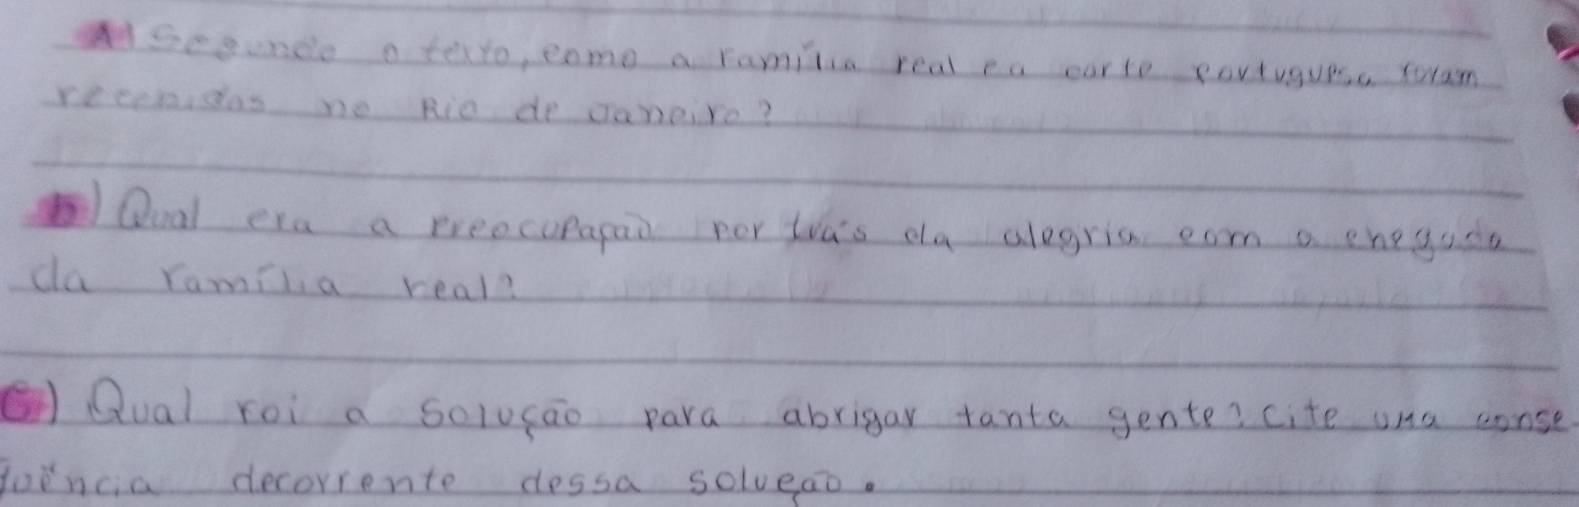 A) Segundo o texto, como a família real e a corte portuguesa foram
recebidas no Rio de Janeiro?
b) Qual era a preocupação por trás da alegria com a chegada
da família real?
C) Qual foi a solução para abrigar tanta gente? cite uma conse
quência decorrente dessa solução.